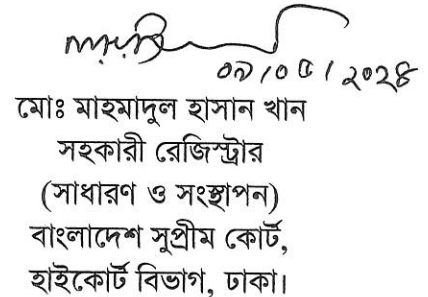 ০৯/০৫/২০২৪
মোঃ মাহমাদুল হাসান খান
সহকারী রেজিস্ট্রার
(সাধারণ ও সংস্থাপন)
বাংলাদেশ সুপ্রীম কোর্ট,
হাইকোর্ট বিভাগ, ঢাকা।